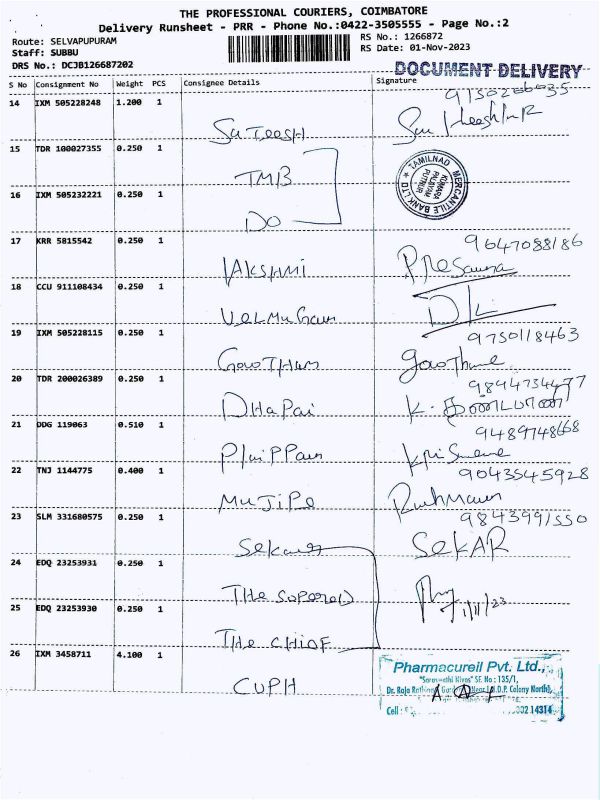 THE PROFESSIONAL COURIERS, COIMBATORE
Delivery Runsheet - PRR - Phone No.:0422-3505555 - Page No.:2
Route: SELVAPUPURAM
RS No.: 1266872
Staff: SUBBU
RS Date: 01-Nov-2023
DRS No.: DCJB126687202
DOCUMENT DELIVERY
S No Consignment No Weight PCS Consignee Details Signature
14 IXM 505228248 1.200 1
SaTeesH
15 TDR 100027355 0.250 1
TMB
TAMILNAD MERCANTILE BANK LTD
16 IXM 505232221 0.250 1
DO
17 KRR 5815542 0.250 1 9047088186
lAKsHmi
18 CCU 911108434 0.250 1
VeLMuGan
19 IXM 505228115 0.250 1 9750118463
GowTHam
20 TDR 200026389 0.250 1 9894734477
DHaPai
21 DDG 119063 0.510 1 9489748668
22 TNJ 1144775 0.400 1 9043545928
MuJiPe
23 SLM 331680575 0.250 1 9843991550
Sekar SEKAR
24 EDQ 23253931 0.250 1
THe SuPereD 1/11/23
25 EDQ 23253930 0.250 1
THe CHIOF
26 IXM 3458711 4.100 1
CUPH
Pharmacureil Pvt. Ltd.,
"Saraswathi Nivas" SF. No : 135/1,
Dr. Raja Rathinam Garden, Near (H.D.P. Colony North),
Cell :